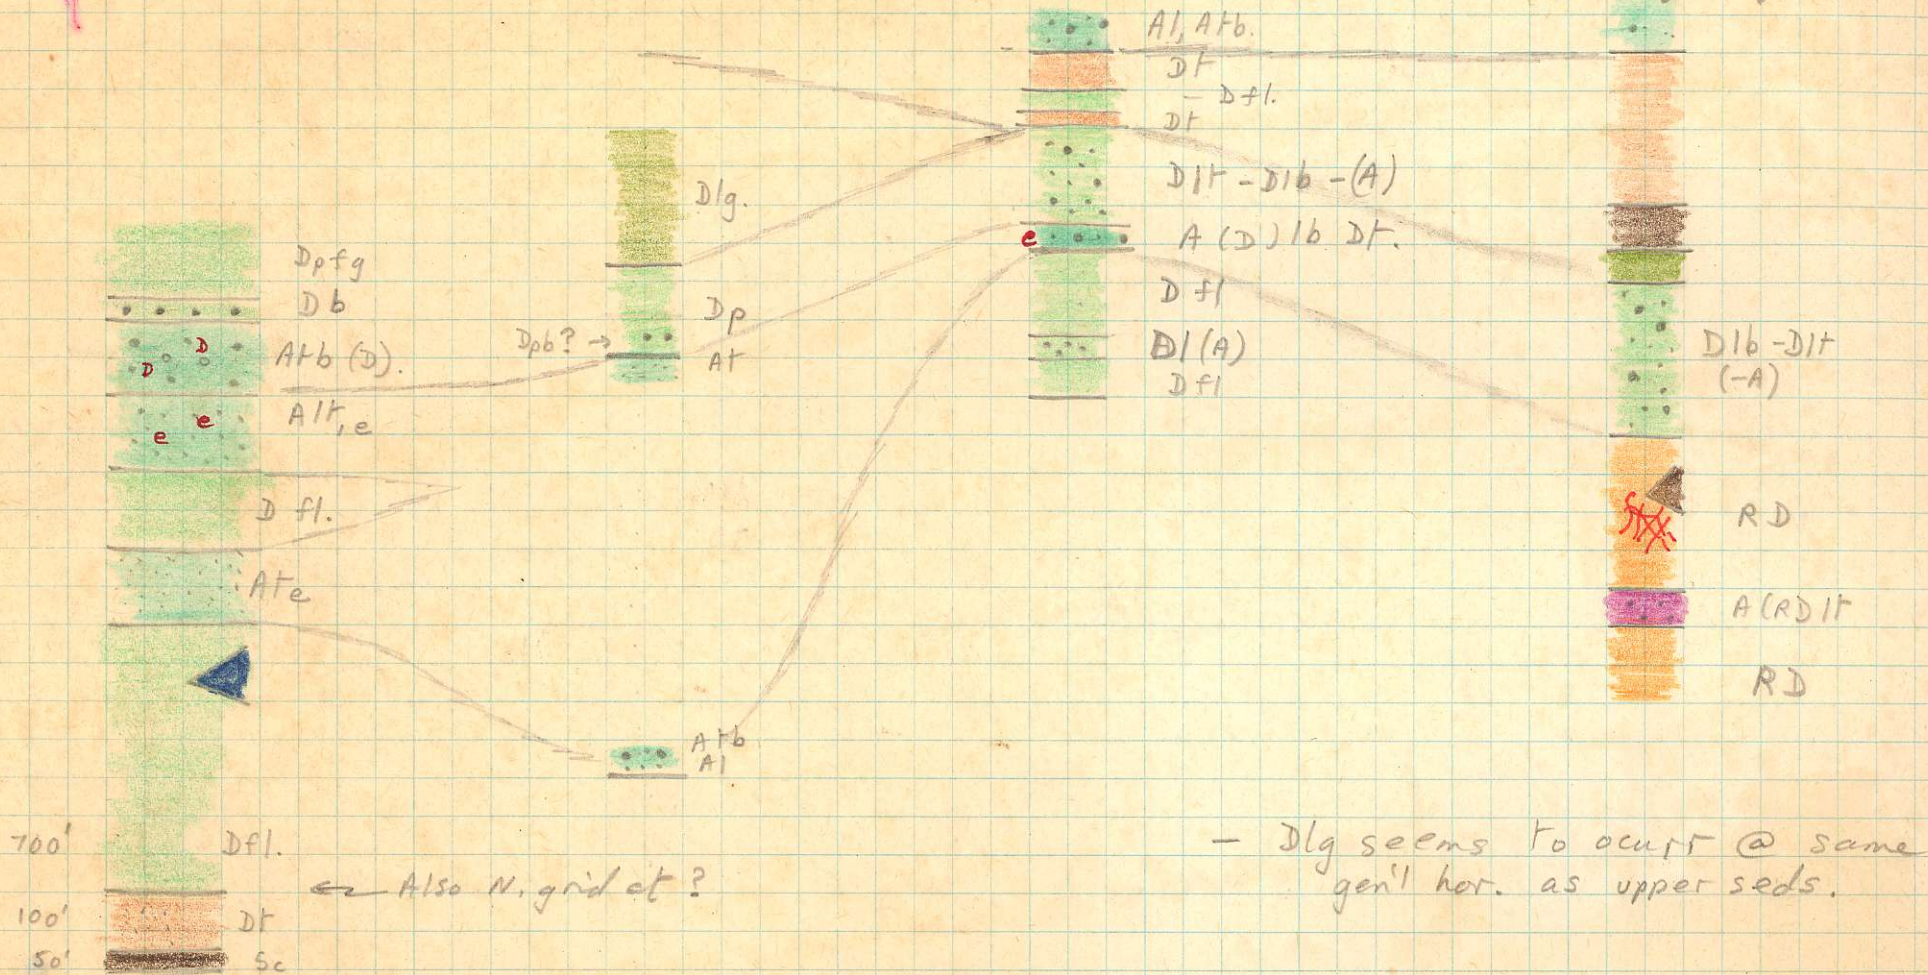 Dpfg
Db
Atb (D).
D
D
Alt, e
e
e
D fl.
Ate
700' Dfl.
← Also N. grid ct?
100' Dt
50' Sc
Dlg.
Dp
Dpb? →
At
Atb
Al
Al, Atb.
Dt
- Dfl.
Dt
Dlt - Dlb - (A)
e A (D) lb Dt.
D fl
Dl (A)
D fl
Dlb - Dlt
(-A)
RD
A (RD lt
RD
- Dlg seems to ocurr @ same
gen'l hor. as upper seds.